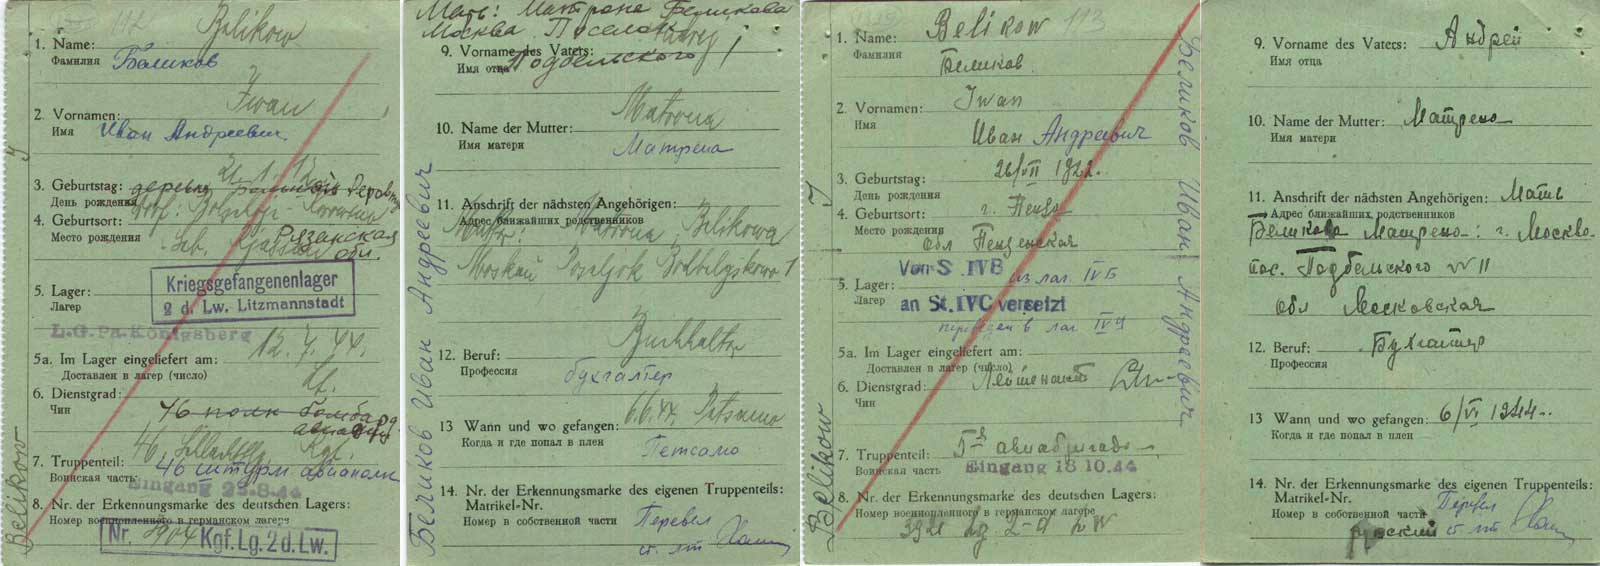 112
Belikow
1. Name:
Фамилия
Беликов
Iwan
2. Vornamen:
Имя
Иван Андреевич
3. Geburtstag:
День рождения
4. Geburtsort:
Место рождения
Рязанская
обл.
Kriegsgefangenenlager
2 d. Lw. Litzmannstadt
5. Lager:
Лагер
L.G.Pa.Königsberg
12. 7. 44.
5a. Im Lager eingeliefert am:
Доставлен в лагер (число)
Lt.
6. Dienstgrad:
Чин
46 полк бомбард.
46
7. Truppenteil:
Воинская часть
46 штурм авиаполк
Eingang 23.8.44
8. Nr. der Erkennungsmarke des deutschen Lagers:
Номер военнопленного в германском лагере
Nr. 3904 Kgf.Lg.2 d.Lw.
Belikow
Мать: Матрена Беликова
Москва Поселок
Подбельского
9. Vorname des Vaters:
Имя отца
Matrona
10. Name der Mutter:
Имя матери
Матрена
11. Anschrift der nächsten Angehörigen:
Адрес ближайших родственников
Matrona Belikowa
Moskau
Buchhalter
12. Beruf:
Профессия
бухгалтер
6.6.44. Petsamo
13 Wann und wo gefangen:
Когда и где попал в плен
Петсамо
14. Nr. der Erkennungsmarke des eigenen Truppenteils:
Matrikel-Nr.
Номер в собственной части
Перевел
ст. лт
Беликов Иван Андреевич
113
Belikow
1. Name:
Фамилия
Беликов
Iwan
2. Vornamen:
Имя
Иван Андреевич
26/VII 1922.
3. Geburtstag:
День рождения
4. Geburtsort:
г. Пенза
Место рождения
обл Пензенская
Von S. IVB
из лаг. IVБ
5. Lager:
Лагер
an St. IVC versetzt
переведен в лаг.
5a. Im Lager eingeliefert am:
Доставлен в лагер (число)
6. Dienstgrad:
Лейтенант
Чин
7. Truppenteil:
5я авиабригада
Воинская часть
Eingang 18.10.44
8. Nr. der Erkennungsmarke des deutschen Lagers:
Номер военнопленного в германском лагере
Belikow
Беликов Иван Андреевич
9. Vorname des Vaters:
Андрей
Имя отца
10. Name der Mutter:
Матрена
Имя матери
11. Anschrift der nächsten Angehörigen:
Мать
Адрес ближайших родственников
Беликова Матрена: г. Москва
пос. Подбельского
обл Московская
12. Beruf:
Бухгалтер
Профессия
13 Wann und wo gefangen:
6/VI 1944.
Когда и где попал в плен
14. Nr. der Erkennungsmarke des eigenen Truppenteils:
Matrikel-Nr.
Номер в собственной части
Перевел
русский
ст. лт